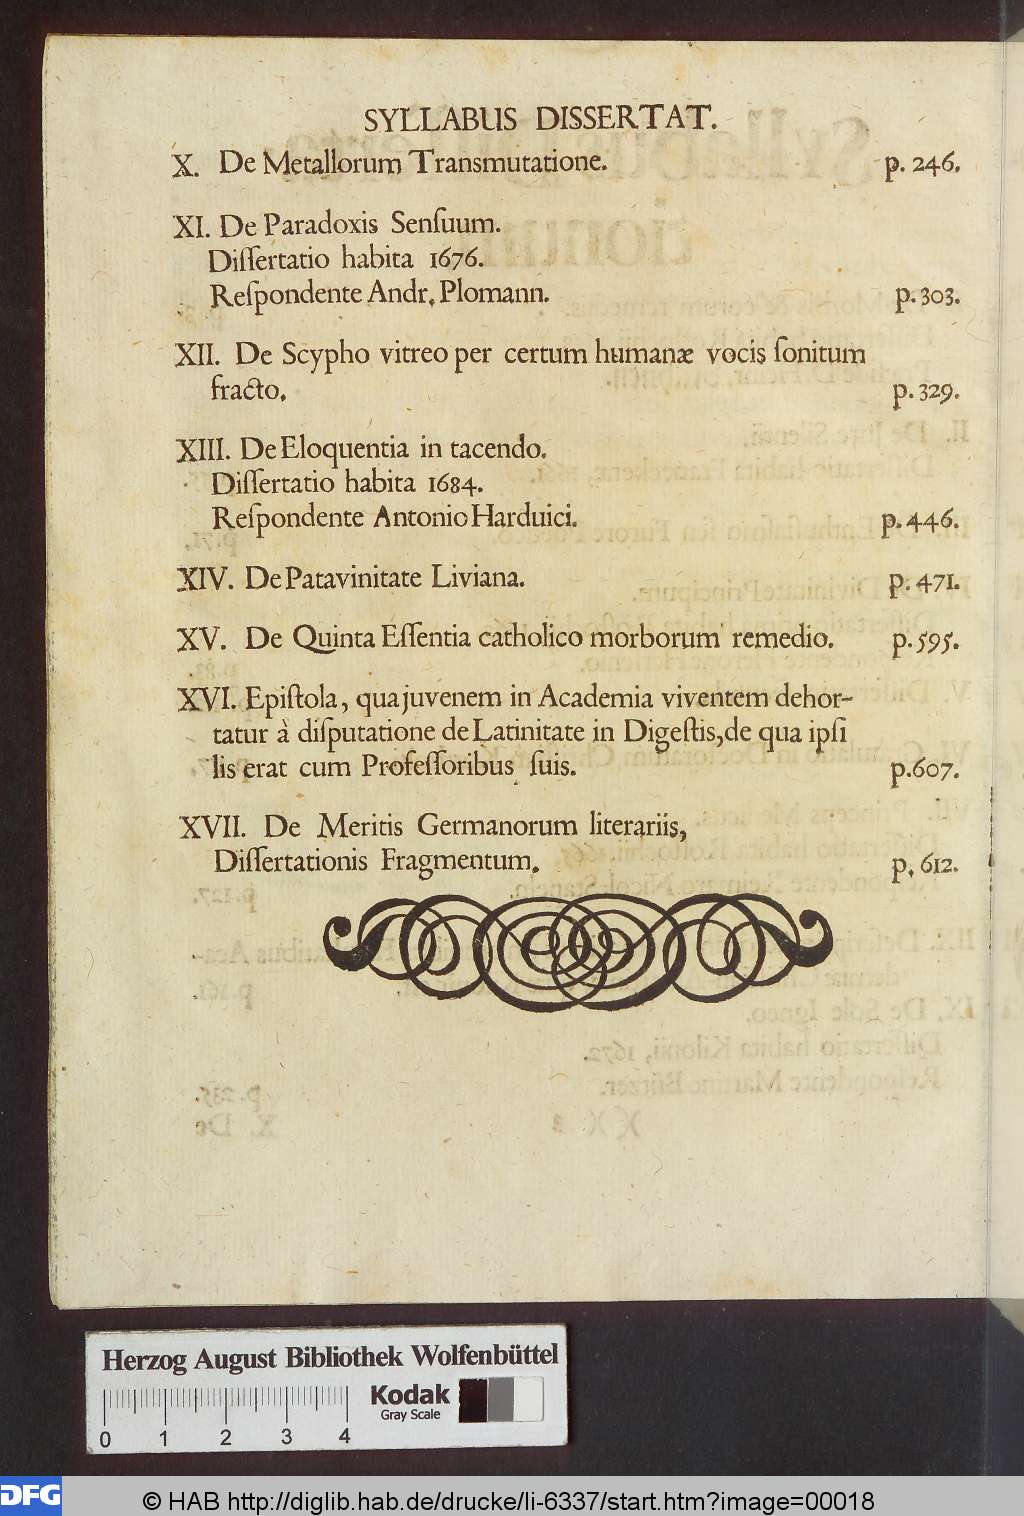 SYLLABUS DISSERTAT.
X. De Metallorum Transmutatione. p. 246.
XI. De Paradoxis Senſuum.
Diſſertatio habita 1676.
Reſpondente Andr. Plomann. p. 303.
XII. De Scypho vitreo per certum humanæ vocis ſonitum
fracto. p. 329.
XIII. De Eloquentia in tacendo.
Diſſertatio habita 1684.
Reſpondente Antonio Harduici. p. 446.
XIV. De Patavinitate Liviana. p. 471.
XV. De Quinta Eſſentia catholico morborum remedio. p. 595.
XVI. Epiſtola, qua juvenem in Academia viventem dehor-
tatur à diſputatione de Latinitate in Digeſtis, de qua ipſi
lis erat cum Profeſſoribus ſuis. p. 607.
XVII. De Meritis Germanorum literariis,
Diſſertationis Fragmentum. p. 612.
Herzog August Bibliothek Wolfenbüttel
Kodak
Gray Scale
0 1 2 3 4
DFG
© HAB http://diglib.hab.de/drucke/li-6337/start.htm?image=00018